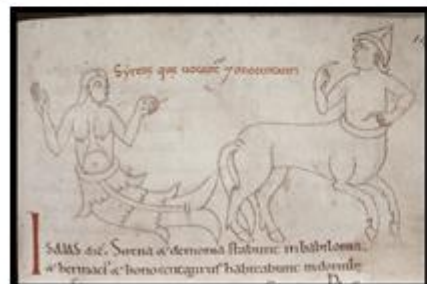 Syrene que uocant̄ 7 onocentauri
ISAIAS dic̄. Sirena & demonia stabunt in babilonia.
& hermaci' & honoscentaurus habitabunt indomib;